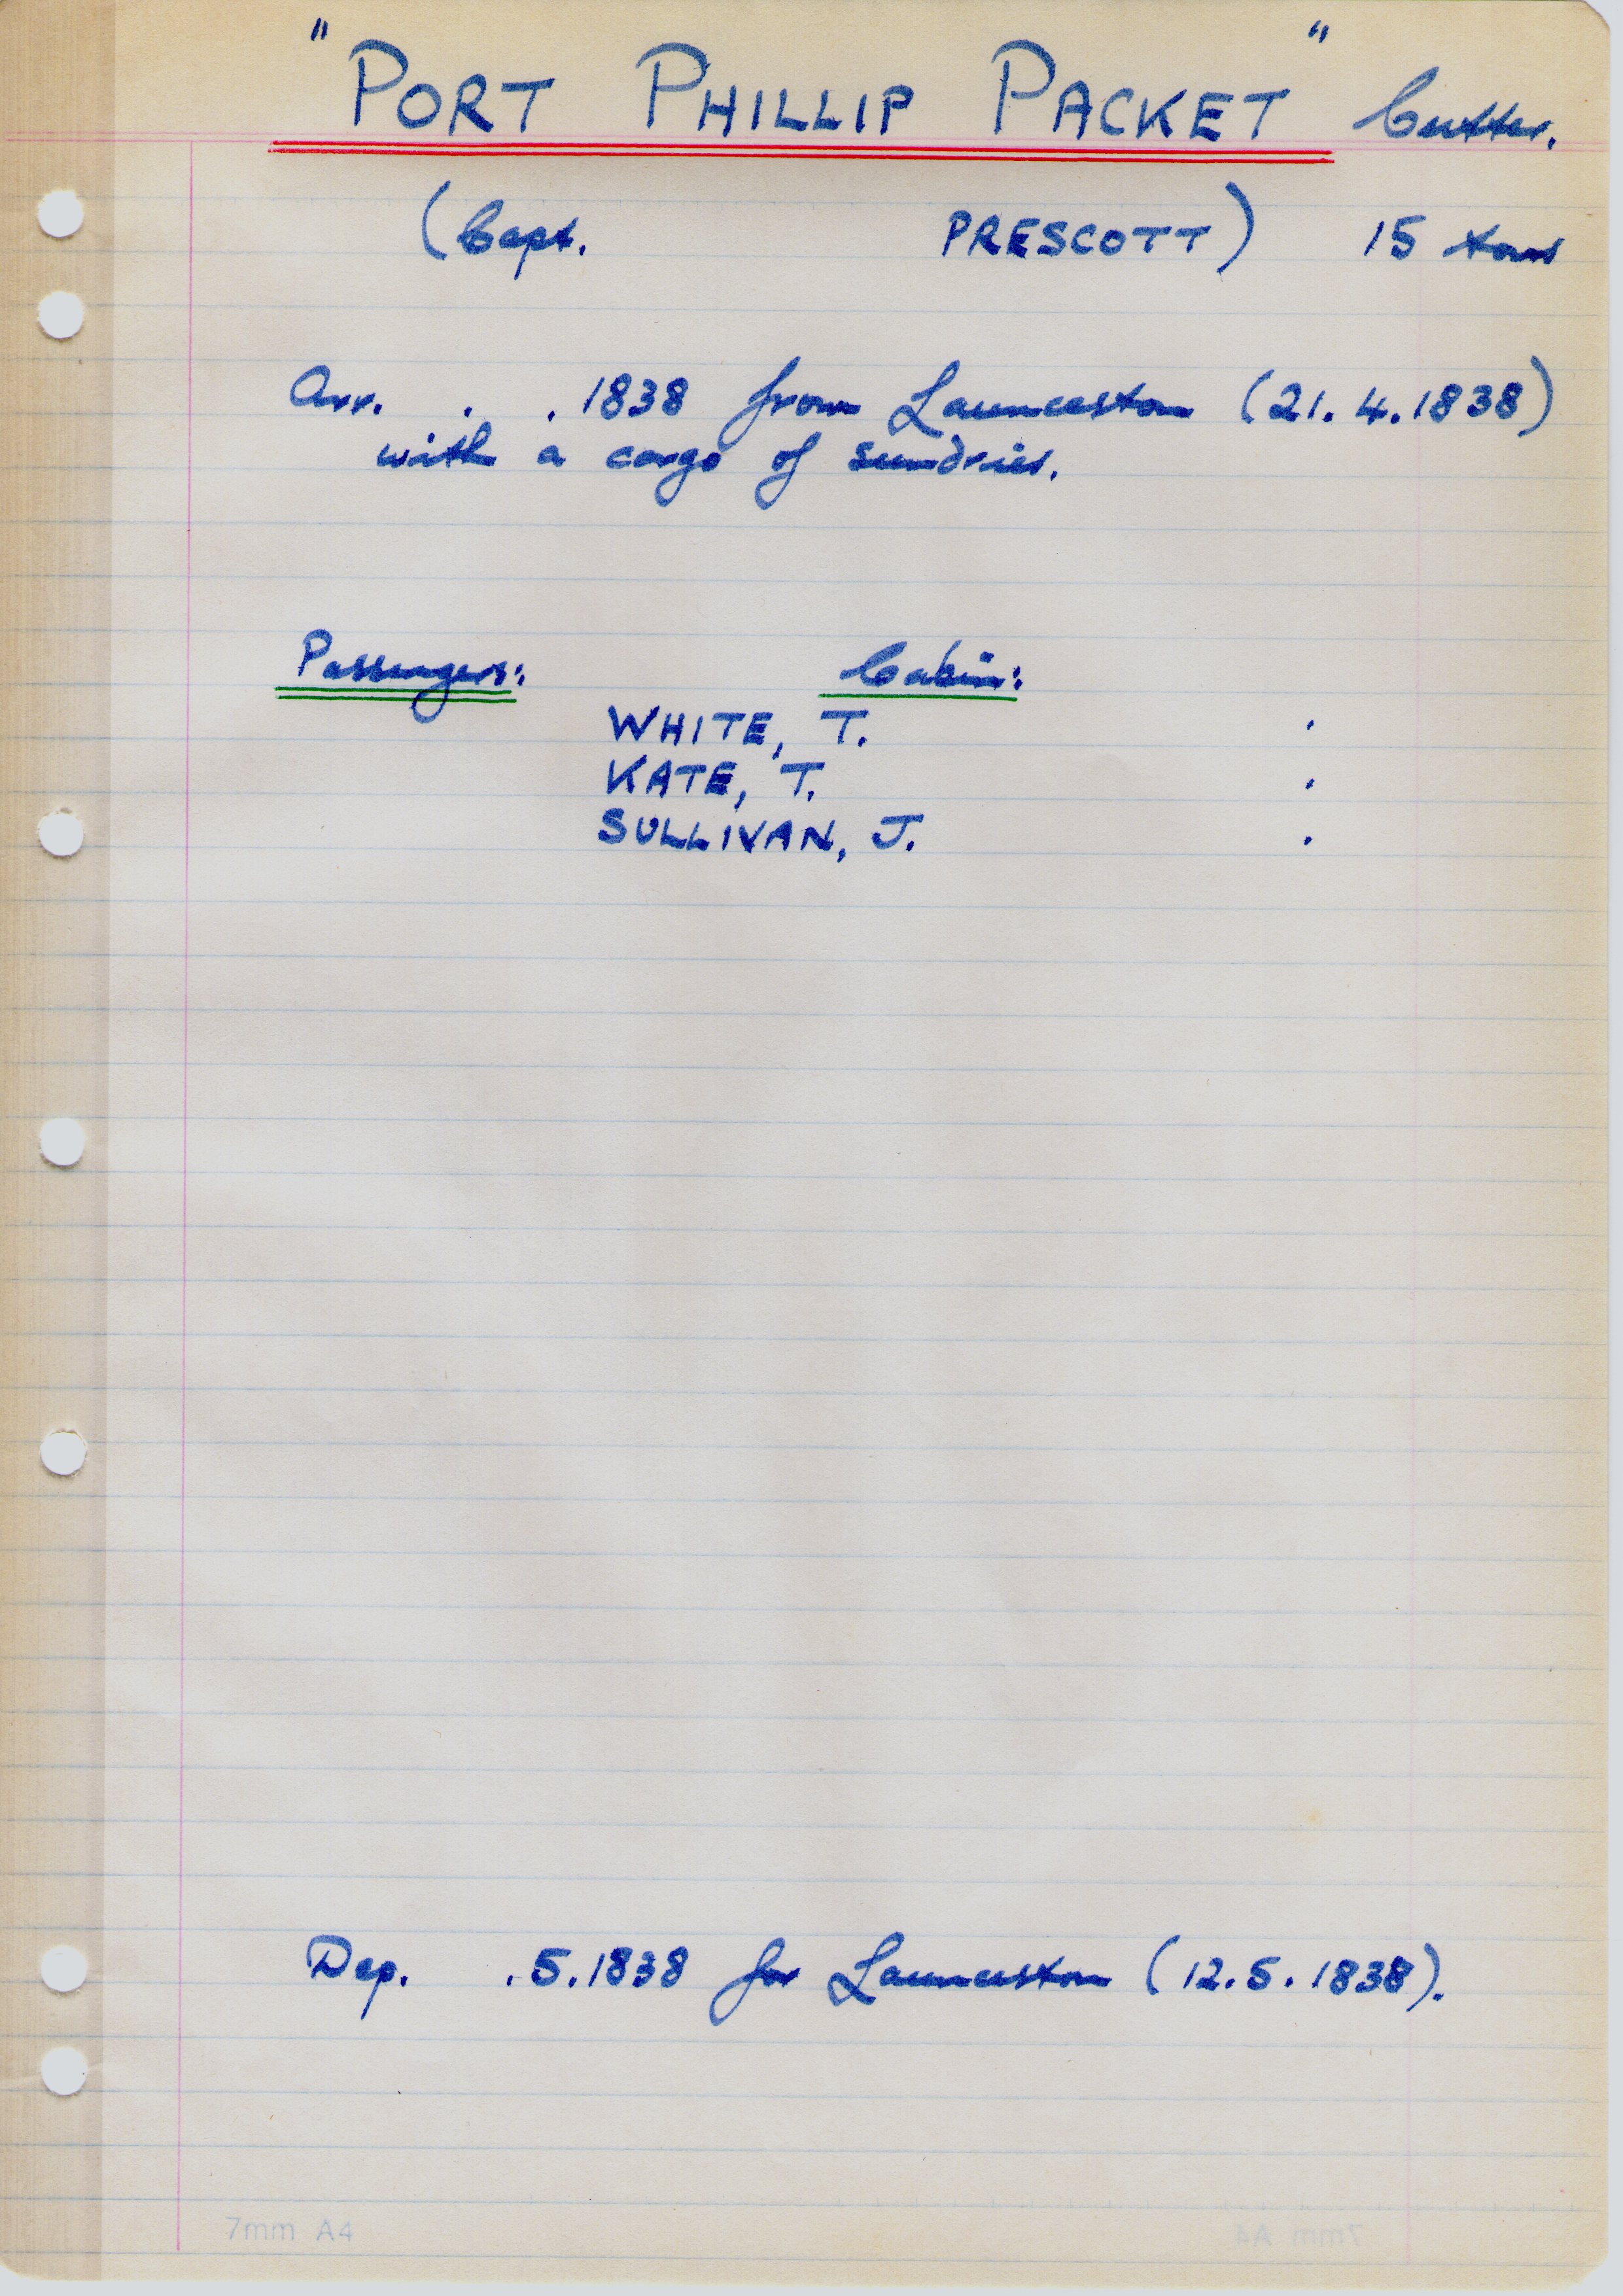 "PORT PHILLIP PACKET" Cutter.
(Capt. PRESCOTT) 15 tons
Arr. . . 1838 from Launceston (21.4.1838)
with a cargo of sundries.
Passengers: Cabin:
WHITE, T. .
KATE, T. .
SULLIVAN, J. .
Dep. .5.1838 for Launceston (12.5.1838).
7mm A4